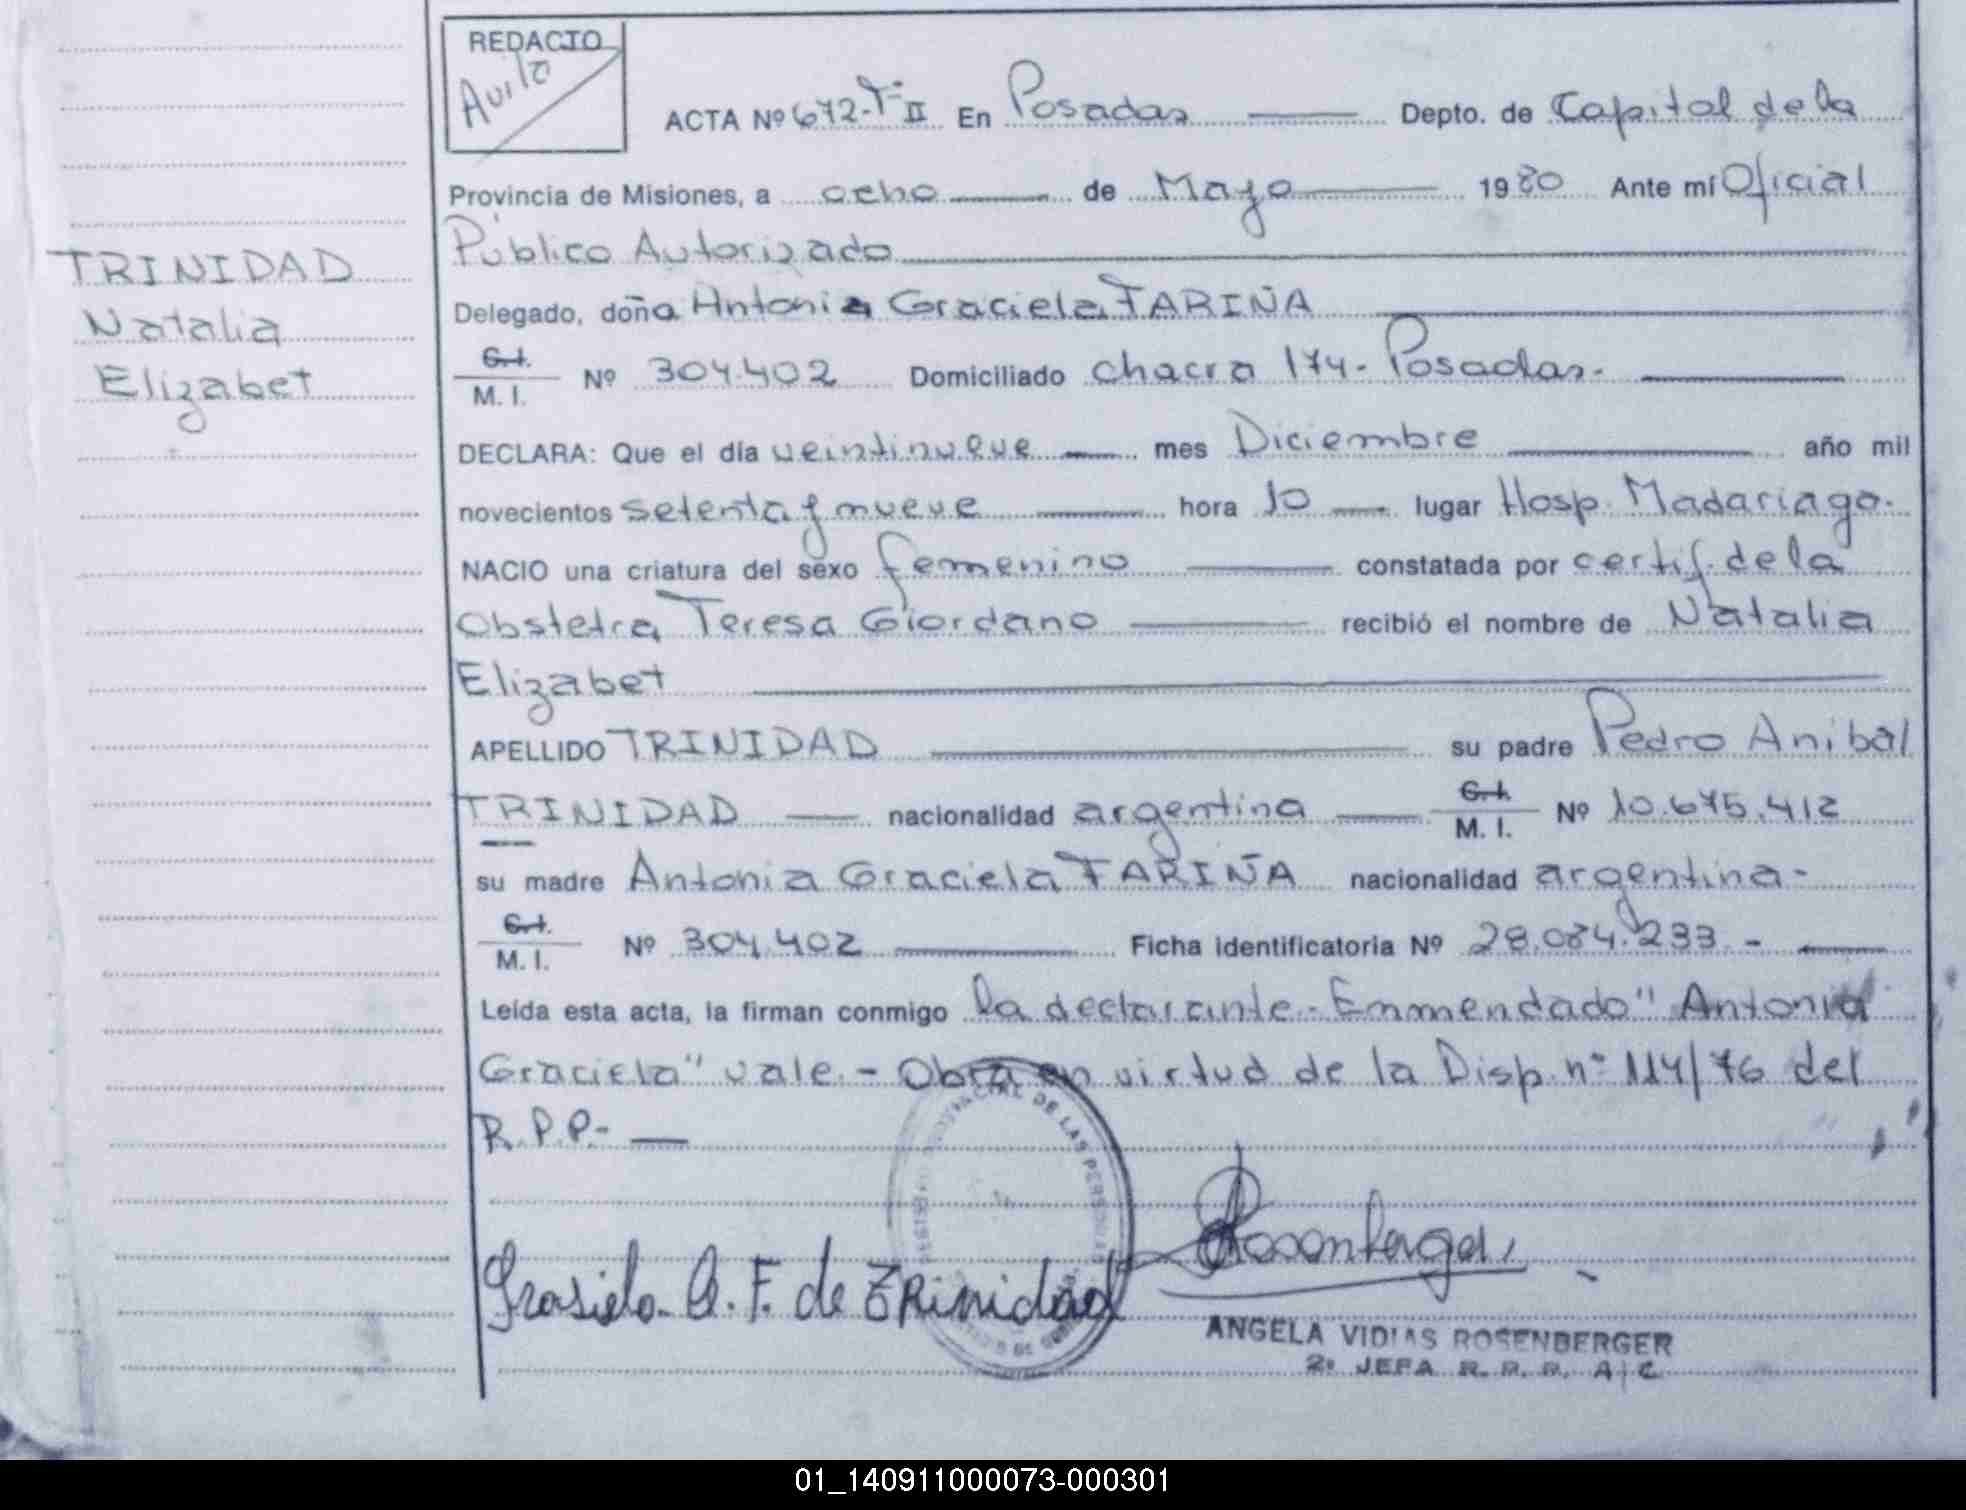 REDACTO
Avila
ACTA Nº 672-Tº II En Posadas Depto. de Capital de la
Provincia de Misiones, a ocho de Mayo 1980 Ante mí Oficial
Público Autorizado
TRINIDAD
Natalia
Elizabet
Delegado, doña Antonia Graciela FARIÑA
C.I.
M. I. Nº 304.402 Domiciliado chacra 174-Posadas.
DECLARA: Que el día veintinueve mes Diciembre año mil
novecientos setenta y nueve hora 10 lugar Hosp. Madariaga.
NACIO una criatura del sexo femenino constatada por certif. de la
Obstetra Teresa Giordano recibió el nombre de Natalia
Elizabet
APELLIDO TRINIDAD su padre Pedro Anibal
TRINIDAD nacionalidad argentina C.I. M. I. Nº 10.675.412
su madre Antonia Graciela FARIÑA nacionalidad argentina-
C.I.
M. I. Nº 304.402 Ficha identificatoria Nº 28.084.233 -
Leída esta acta, la firman conmigo la declarante - Enmendado" Antonia
Graciela" vale. - Obra en virtud de la Disp. nº 114/76 del
R.P.P.-
PROVINCIAL DE LAS PERSONAS
Grasiela A. F. de TRinidad
Rosenberger
ANGELA VIDIAS ROSENBERGER
2º JEFA R. P. P. A/C
01_140911000073-000301